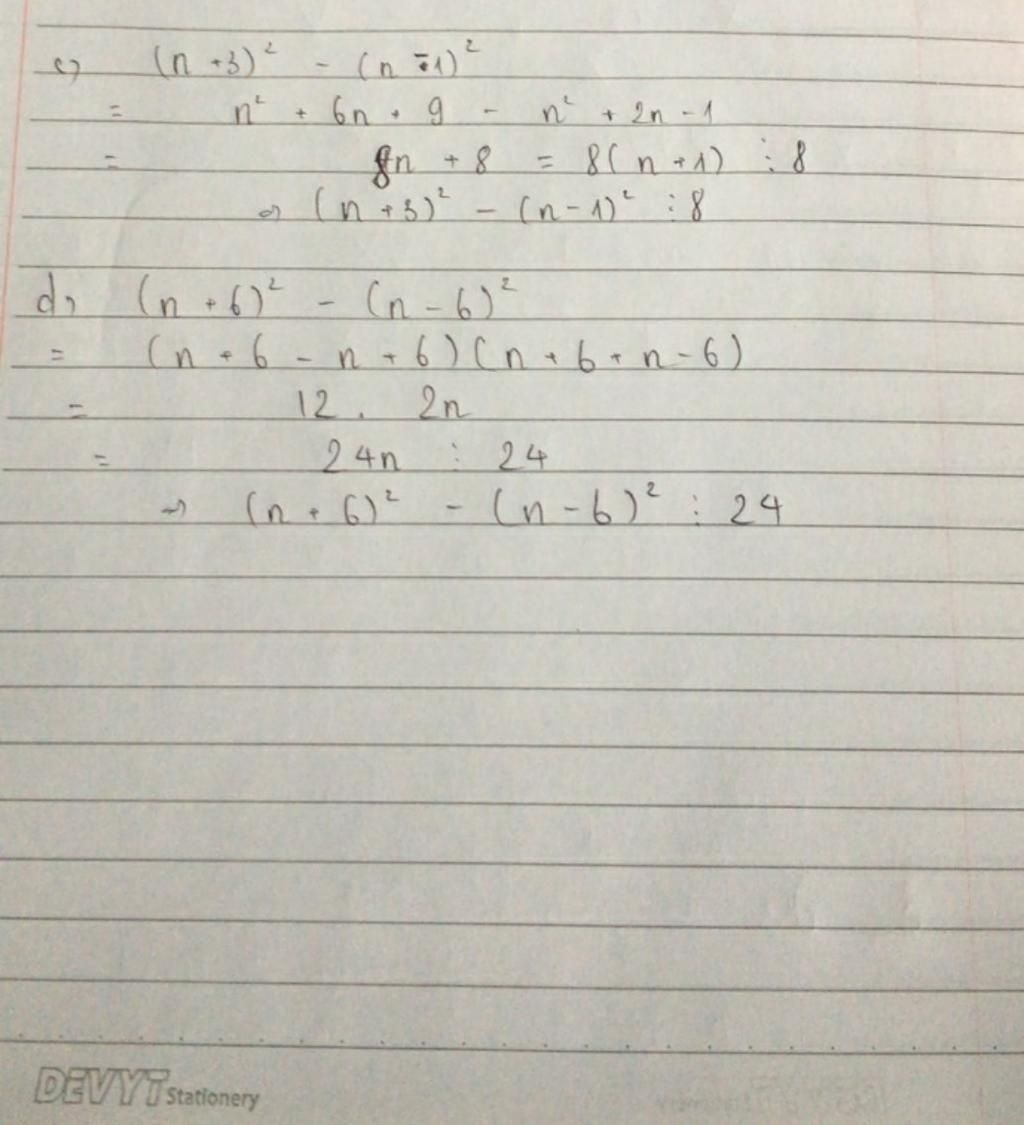 c, (n + 3)² - (n - 1)²
= n² + 6n + 9 - n² + 2n - 1
= 8n + 8 = 8(n + 1) ⋮ 8
⇒ (n + 3)² - (n - 1)² ⋮ 8
d, (n + 6)² - (n - 6)²
= (n + 6 - n + 6)(n + 6 + n - 6)
= 12 . 2n
= 24n ⋮ 24
⇒ (n + 6)² - (n - 6)² ⋮ 24
DEVYT Stationery